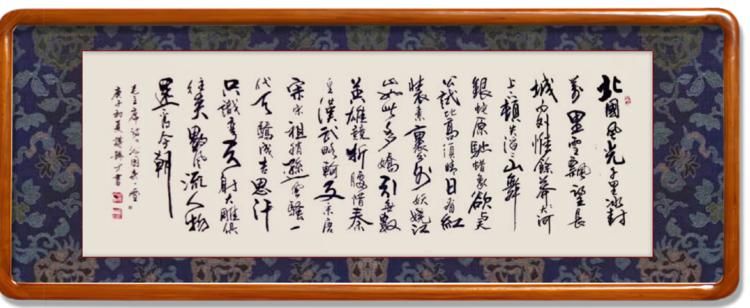 北國風光千里冰封
萬里雪飄望長
城內外惟餘莽莽大河
上下頓失滔滔山舞
銀蛇原馳蠟象欲與天
公試比高須晴日看紅
裝素裹分外妖嬈江
山如此多嬌引無數
英雄競折腰惜秦
皇漢武略輸文采唐
宗宋祖稍遜風騷一
代天驕成吉思汗
只識彎弓射大雕俱
往矣數風流人物
還看今朝
毛主席詞沁園春雪
庚子初夏書